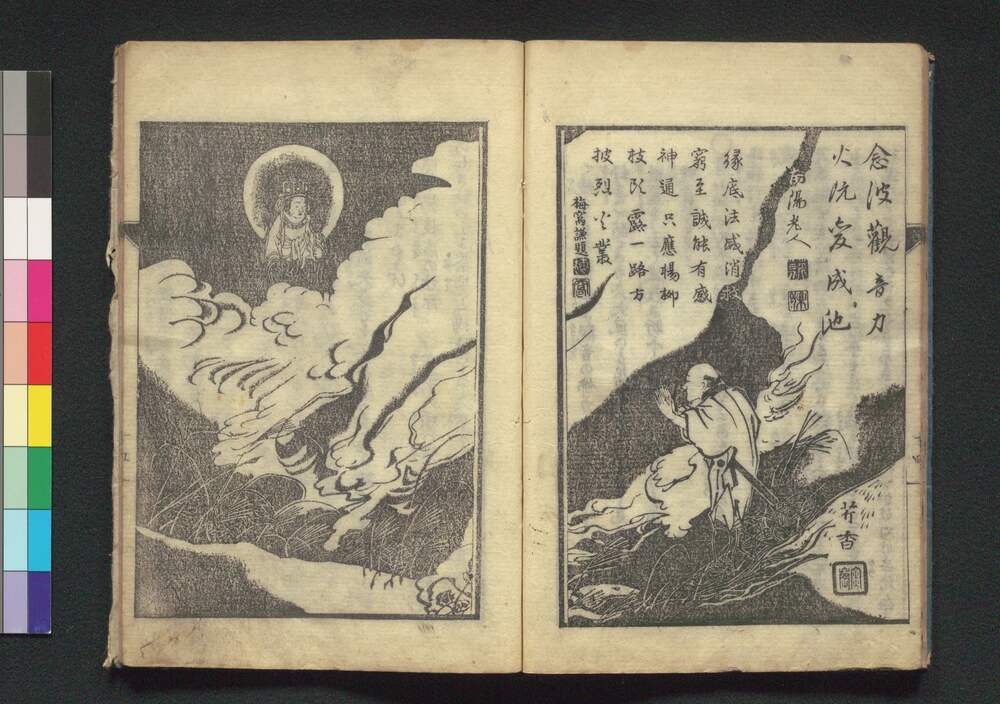 念彼觀音力
火阬変成池
南陽老人
緣底法威消
窮至誠能有感
神通只應楊柳
枝頭露一路方
披烈火叢
梅窩謙題
芹香